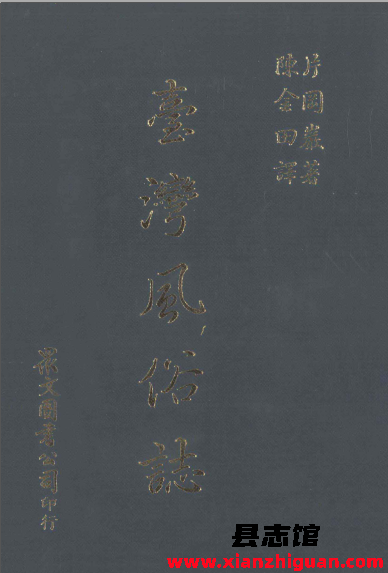 片岡巖著
陳金田譯
臺灣風俗誌
眾文圖書公司印行
县志馆
www.xianzhiguan.com